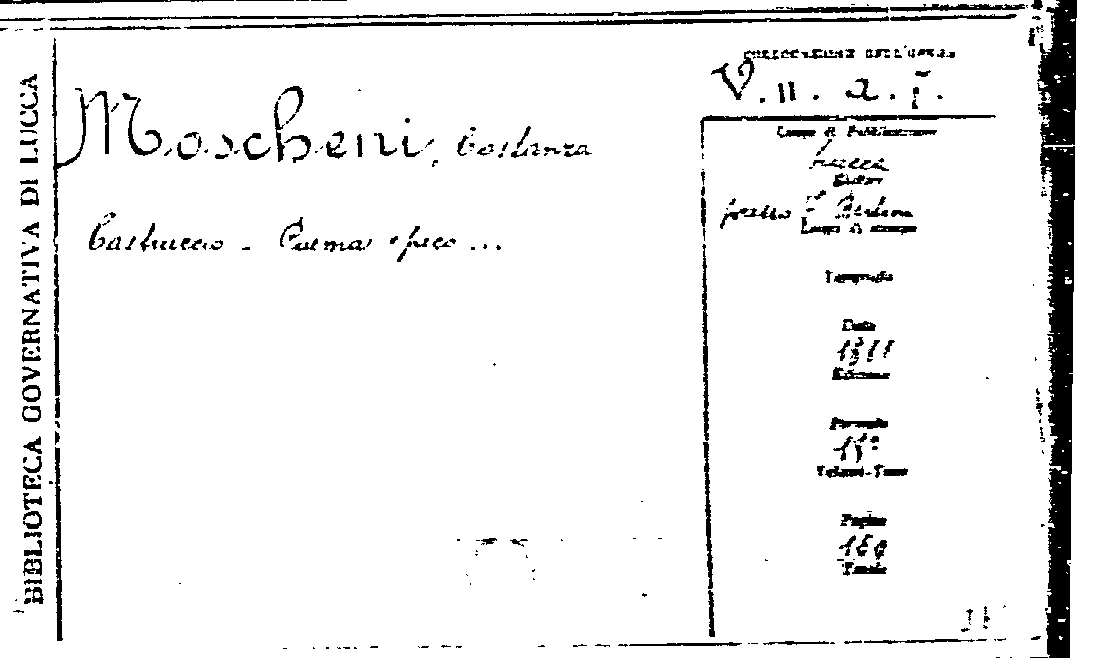 BIBLIOTECA GOVERNATIVA DI LUCCA
Moscheni, Costanza
Castruccio - Poema epico ...
COLLOCAZIONE DELL'OPERA
V. II. a. 7.
Luogo di Pubblicazione
Lucca
Editore
presso F. Bertini
Luogo di stampa
Tipografia
Data
1811
Edizione
Formato
Volumi-Tomi
Pagine
Tavole